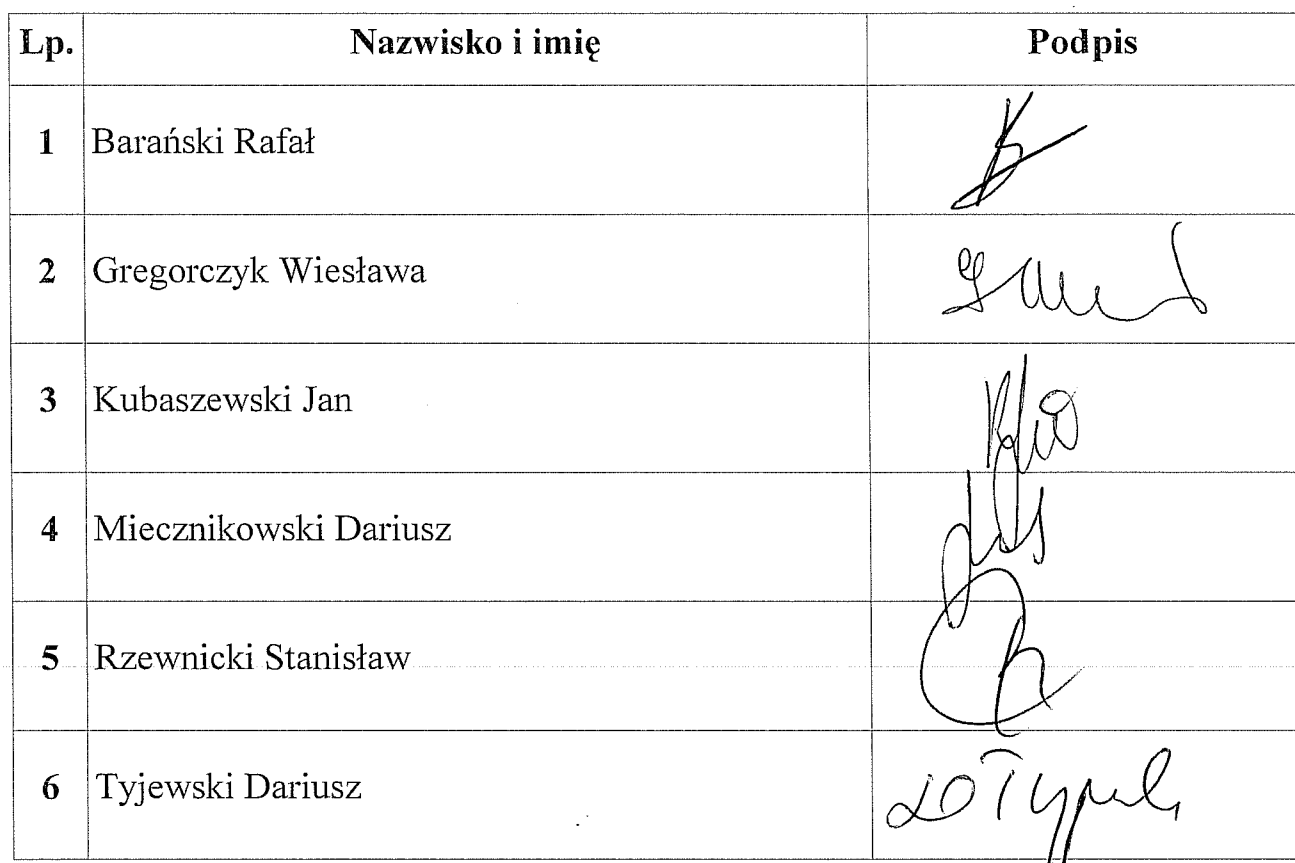 Lp. Nazwisko i imię Podpis
1 Barański Rafał
2 Gregorczyk Wiesława
3 Kubaszewski Jan
4 Miecznikowski Dariusz
5 Rzewnicki Stanisław
6 Tyjewski Dariusz